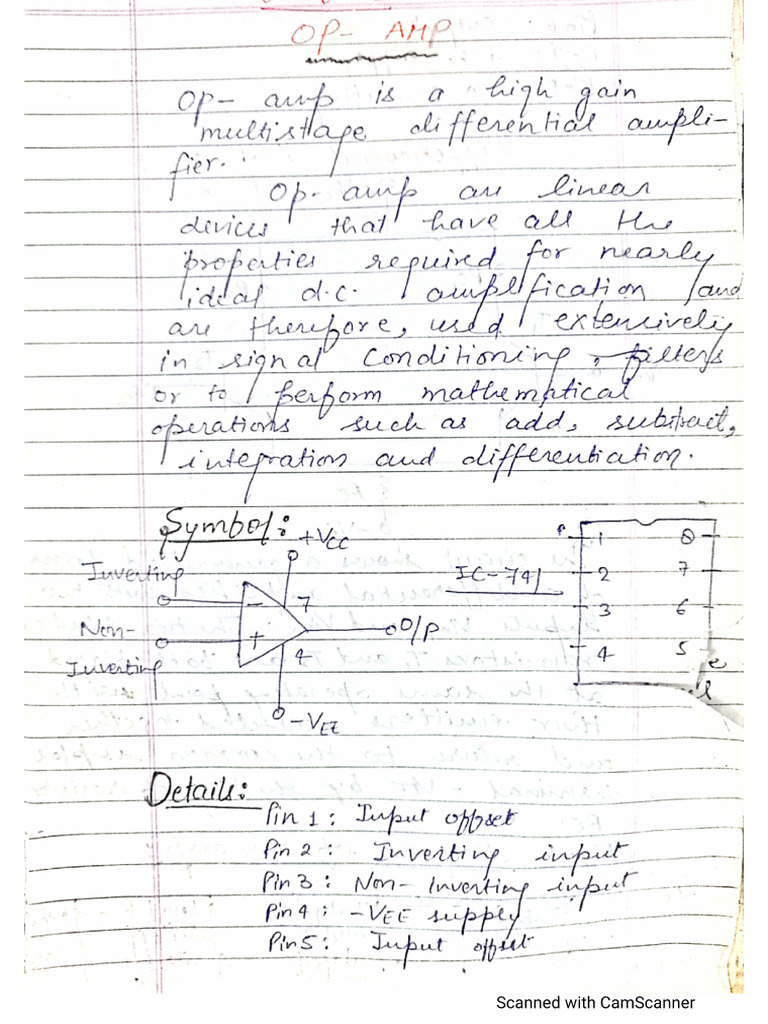 OP- AMP
Op- amp is a high gain
multistage differential ampli-
fier.
Op- amp are linear
devices that have all the
properties required for nearly
ideal d.c. amplification and
are therefore, used extensively
in signal conditioning, filters
or to perform mathematical
operations such as add, subtract,
integration and differentiation.
Symbol:
+VCC
Inverting
−
7
O/P
Non-
Inverting
+
4
-VEE
IC-741
1 8
2 7
3 6
4 5
Details:
Pin 1: Input offset
Pin 2: Inverting input
Pin 3: Non-Inverting input
Pin 4: -VEE supply
Pin 5: Input offset
Scanned with CamScanner